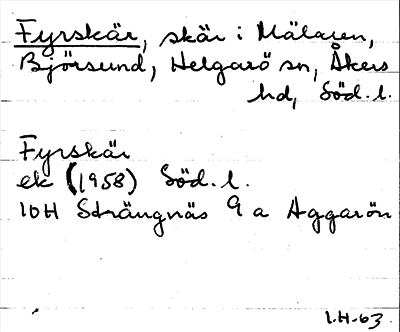 Fyrskär, skär i Mälaren,
Björsund, Helgarö sn, Åkers
hd, Söd. l.
Fyrskär
ek (1958) Söd. l.
10H Strängnäs 9 a Aggarön
I.H-63